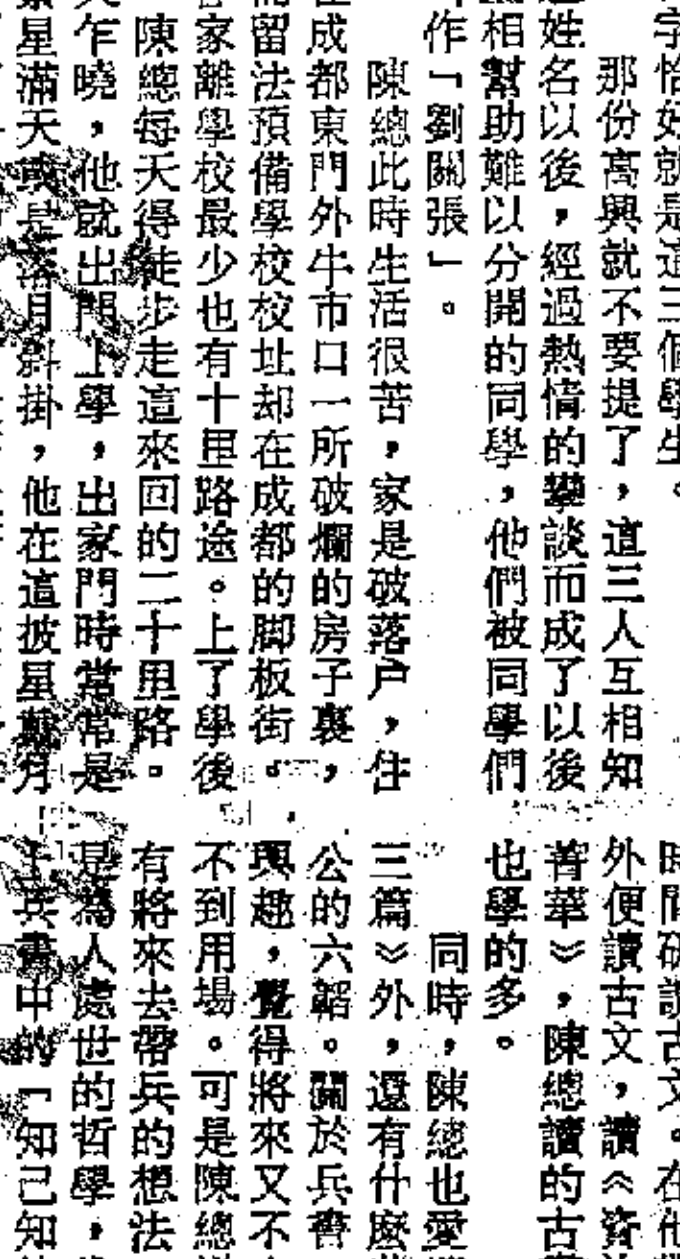 字恰好就是這三個學生。
那份高興就不要提了，這三人互相知
姓名以後，經過熱情的攀談而成了以後
相幫助難以分開的同學，他們被同學們
作「劉關張」。
陳總此時生活很苦，家是破落戶，住
成都東門外牛市口一所破爛的房子裏，
留法預備學校校址却在成都的脚板街。
家離學校最少也有十里路途。上了學後
陳總每天得徒步走這來回的二十里路。
乍曉，他就出門上學，出家門時常常是
星滿天或是落月斜掛，他在這披星戴月
時間研讀古文。在他
外便讀古文，讀《資
菁華》，陳總讀的古
也學的多。
同時，陳總也愛
三篇》外，還有什麼
公的六韜。關於兵書
興趣，覺得將來又不
不到用場。可是陳總
有將來去帶兵的想法
是為人處世的哲學，
兵書中的「知己知